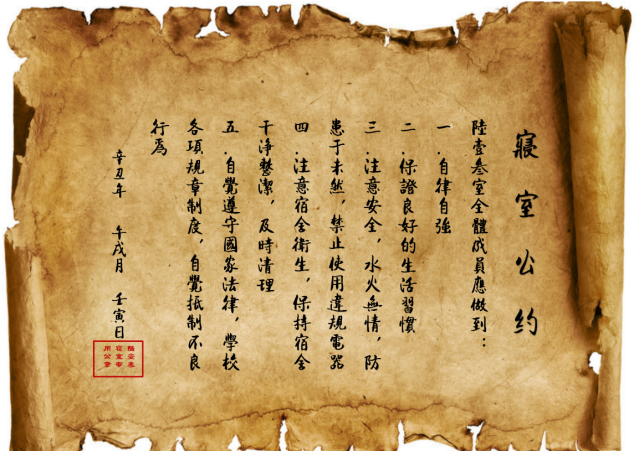 寢室公约
陸壹叁室全體成員應做到：
一.自律自強
二.保證良好的生活習慣
三.注意安全，水火無情，防
患于未然，禁止使用違規電器
四.注意宿舍衛生，保持宿舍
干淨整潔，及時清理
五.自覺遵守國家法律，學校
各項規章制度，自覺抵制不良
行爲
辛丑年 午戌月 壬寅日